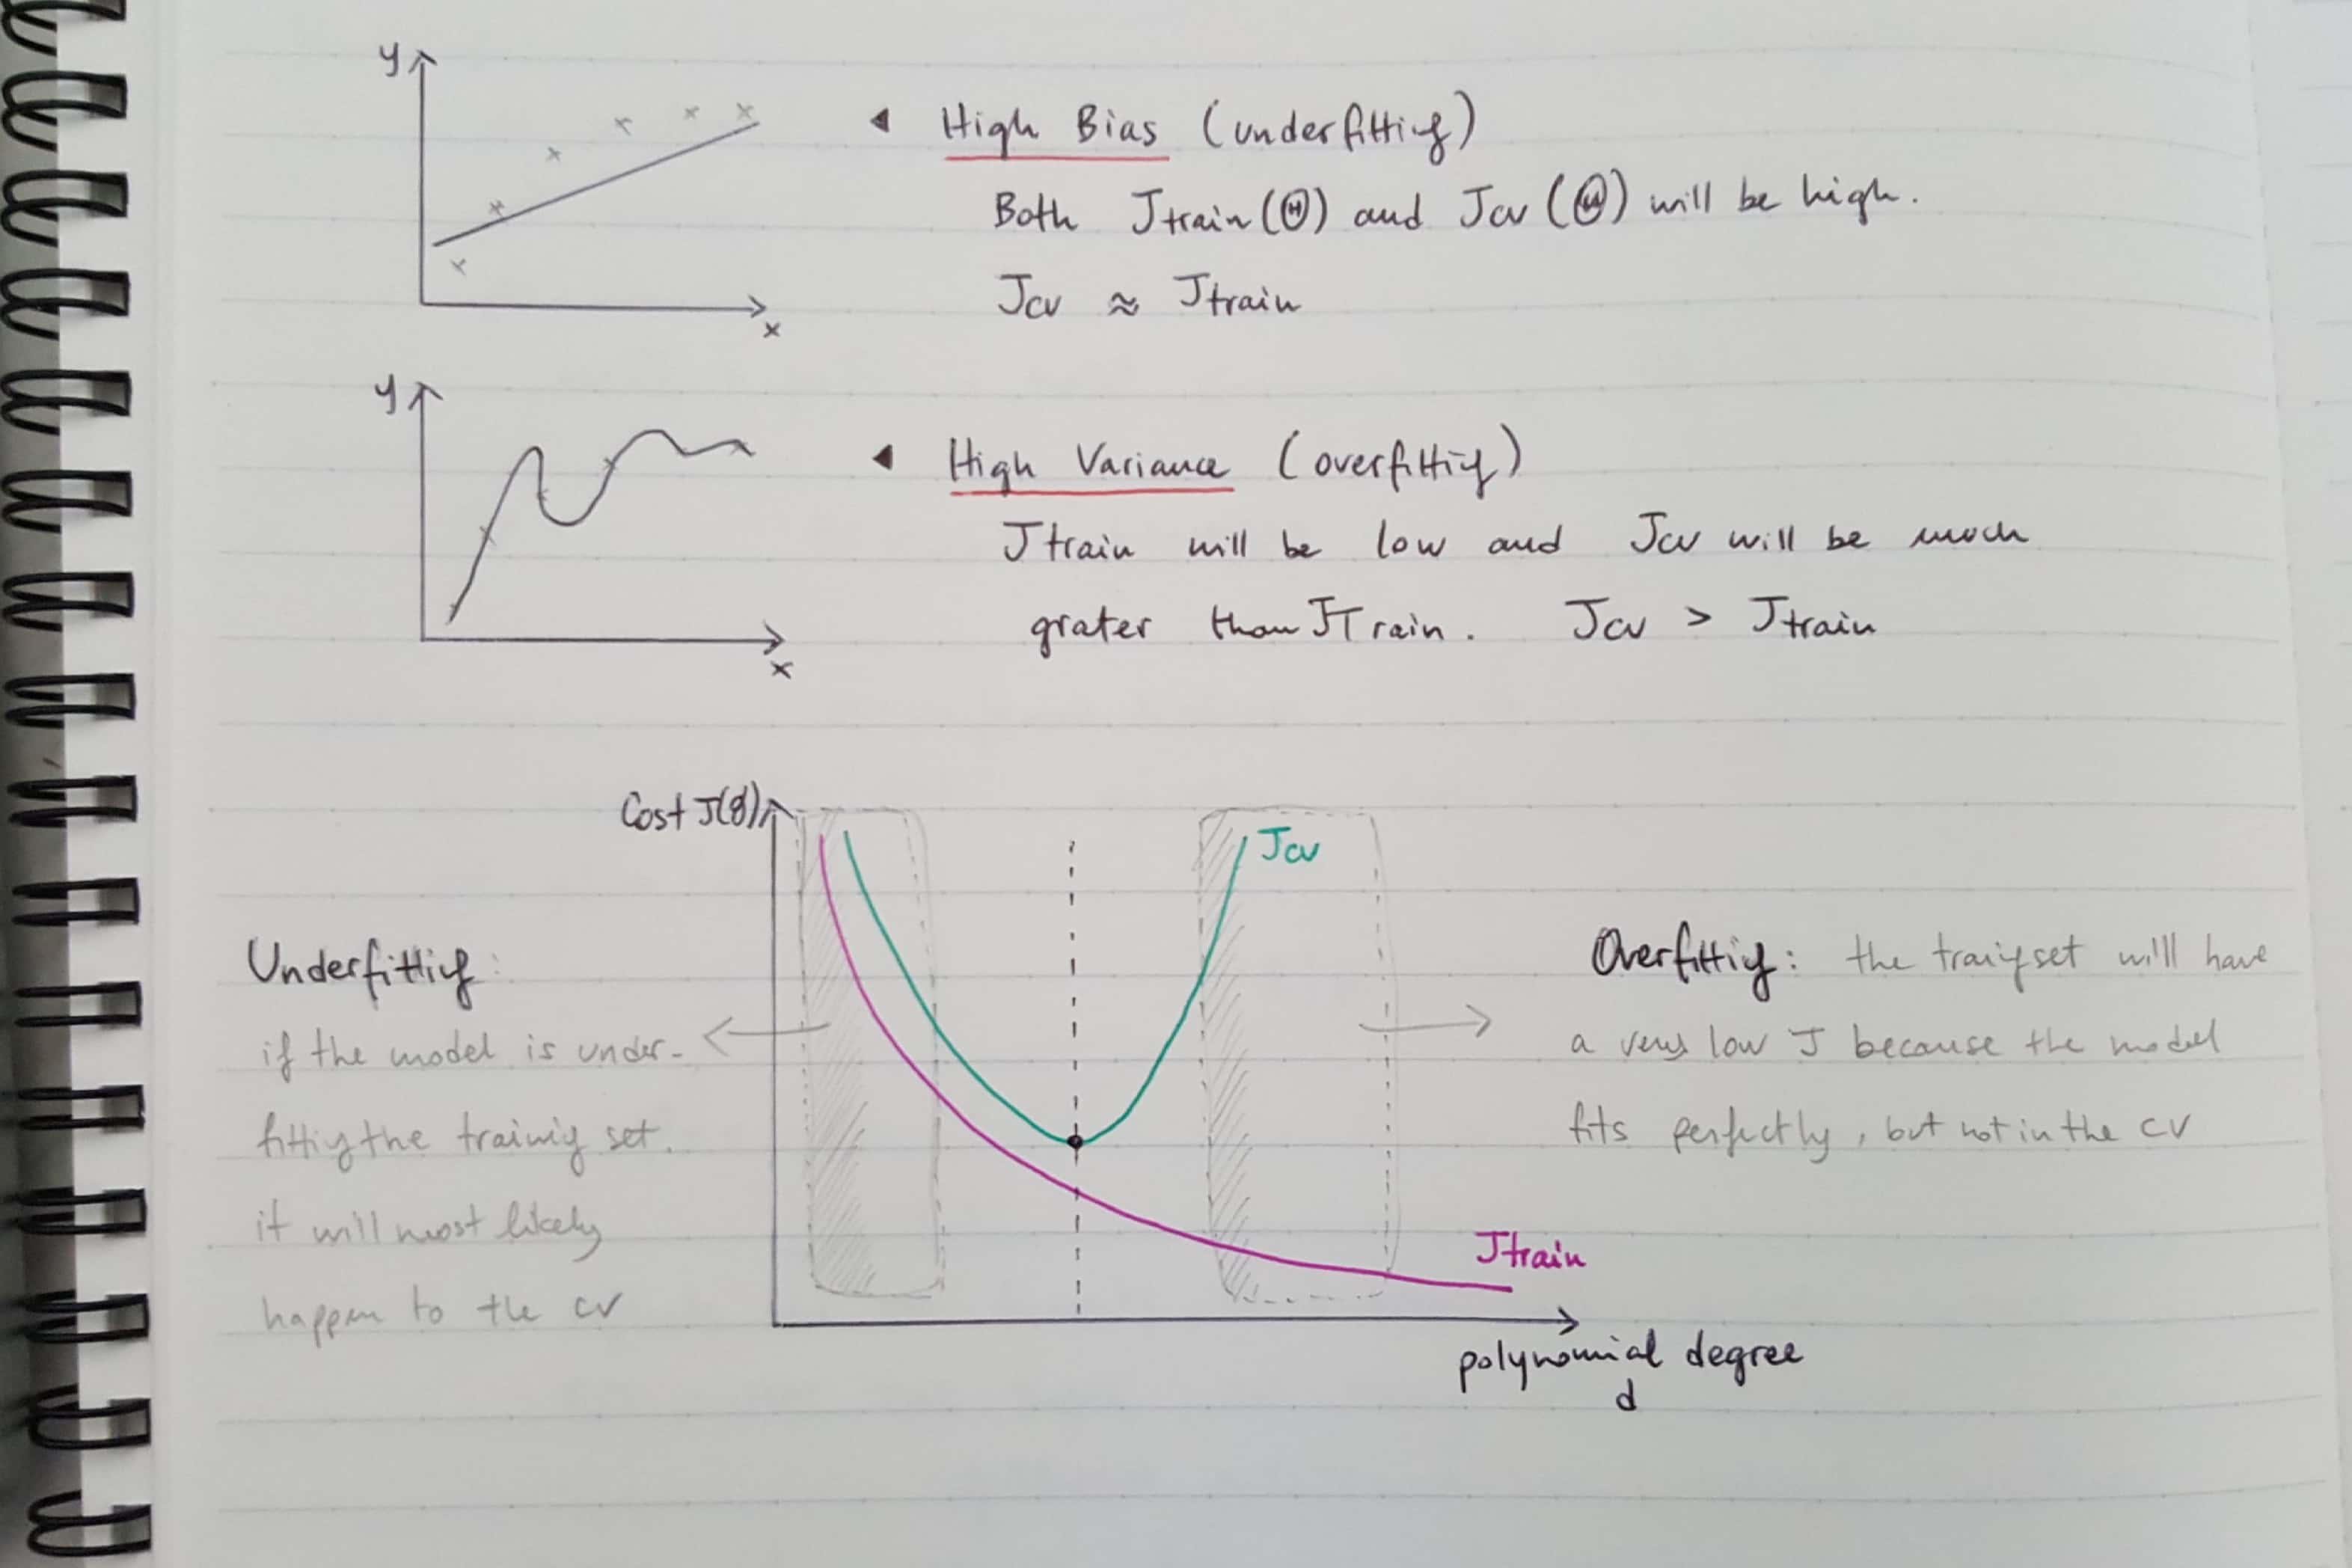 y
High Bias (underfitting)
Both Jtrain(Θ) and Jcv(Θ) will be high.
Jcv ≈ Jtrain
x
y
High Variance (overfitting)
Jtrain will be low and Jcv will be much
grater than JTrain. Jcv > Jtrain
x
Cost J(θ)
Jcv
Underfitting:
if the model is under-
fitting the training set.
it will most likely
happen to the cv
Overfitting: the traingset will have
a very low J because the model
fits perfectly, but not in the cv
Jtrain
polynomial degree
d